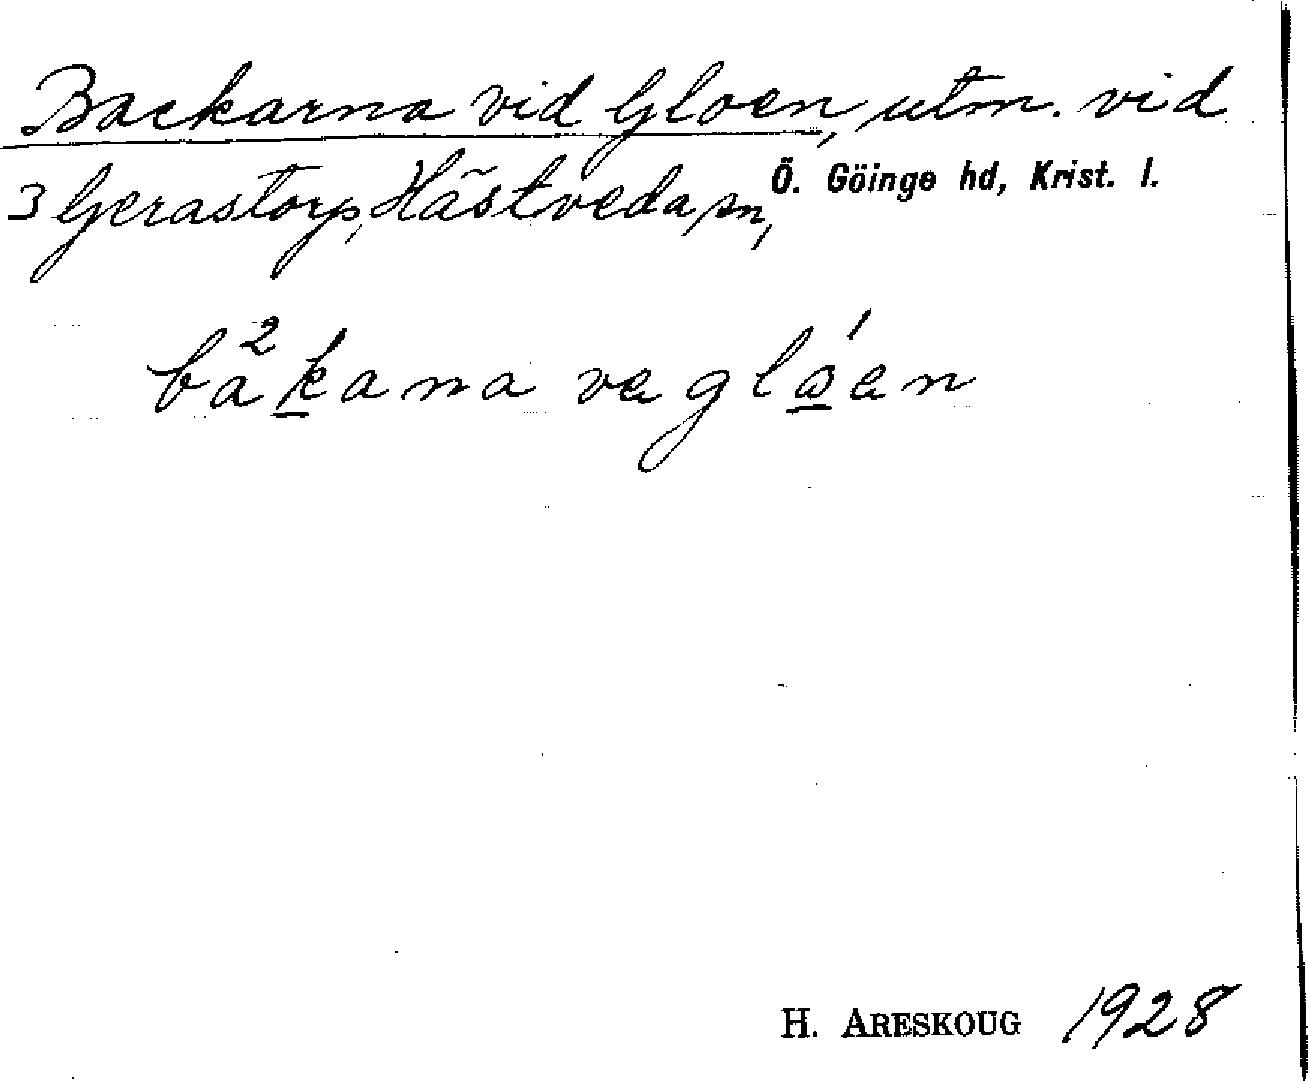 Backarna vid Gloen, utm. vid
3 Gerastorp, Hästveda sn, Ö. Göinge hd, Krist. l.
ba²kana ve glo´en
H. ARESKOUG 1928